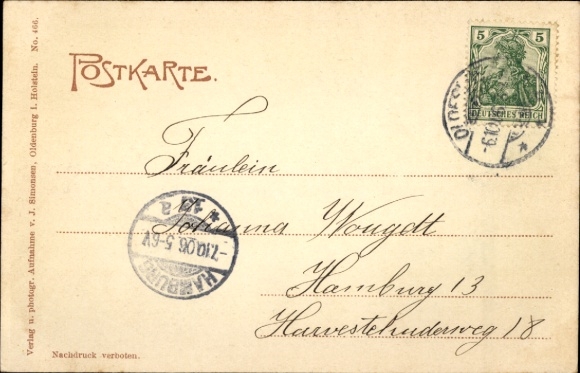 POSTKARTE.
5 5
DEUTSCHES REICH
-6.10.06
Fräulein
Johanna Wougdt
Hamburg 13
Harvestehuderweg 18
HAMBURG
-7.10.06. 5-6V
* 13 a
Verlag u. photogr. Aufnahme v. J. Simonsen, Oldenburg i. Holstein. No. 466.
Nachdruck verboten.